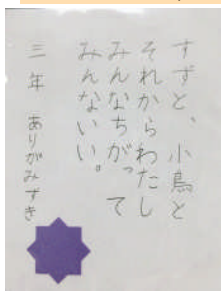 すずと、小鳥と
それからわたし
みんなちがって
みんないい。
三年 ありがみずき